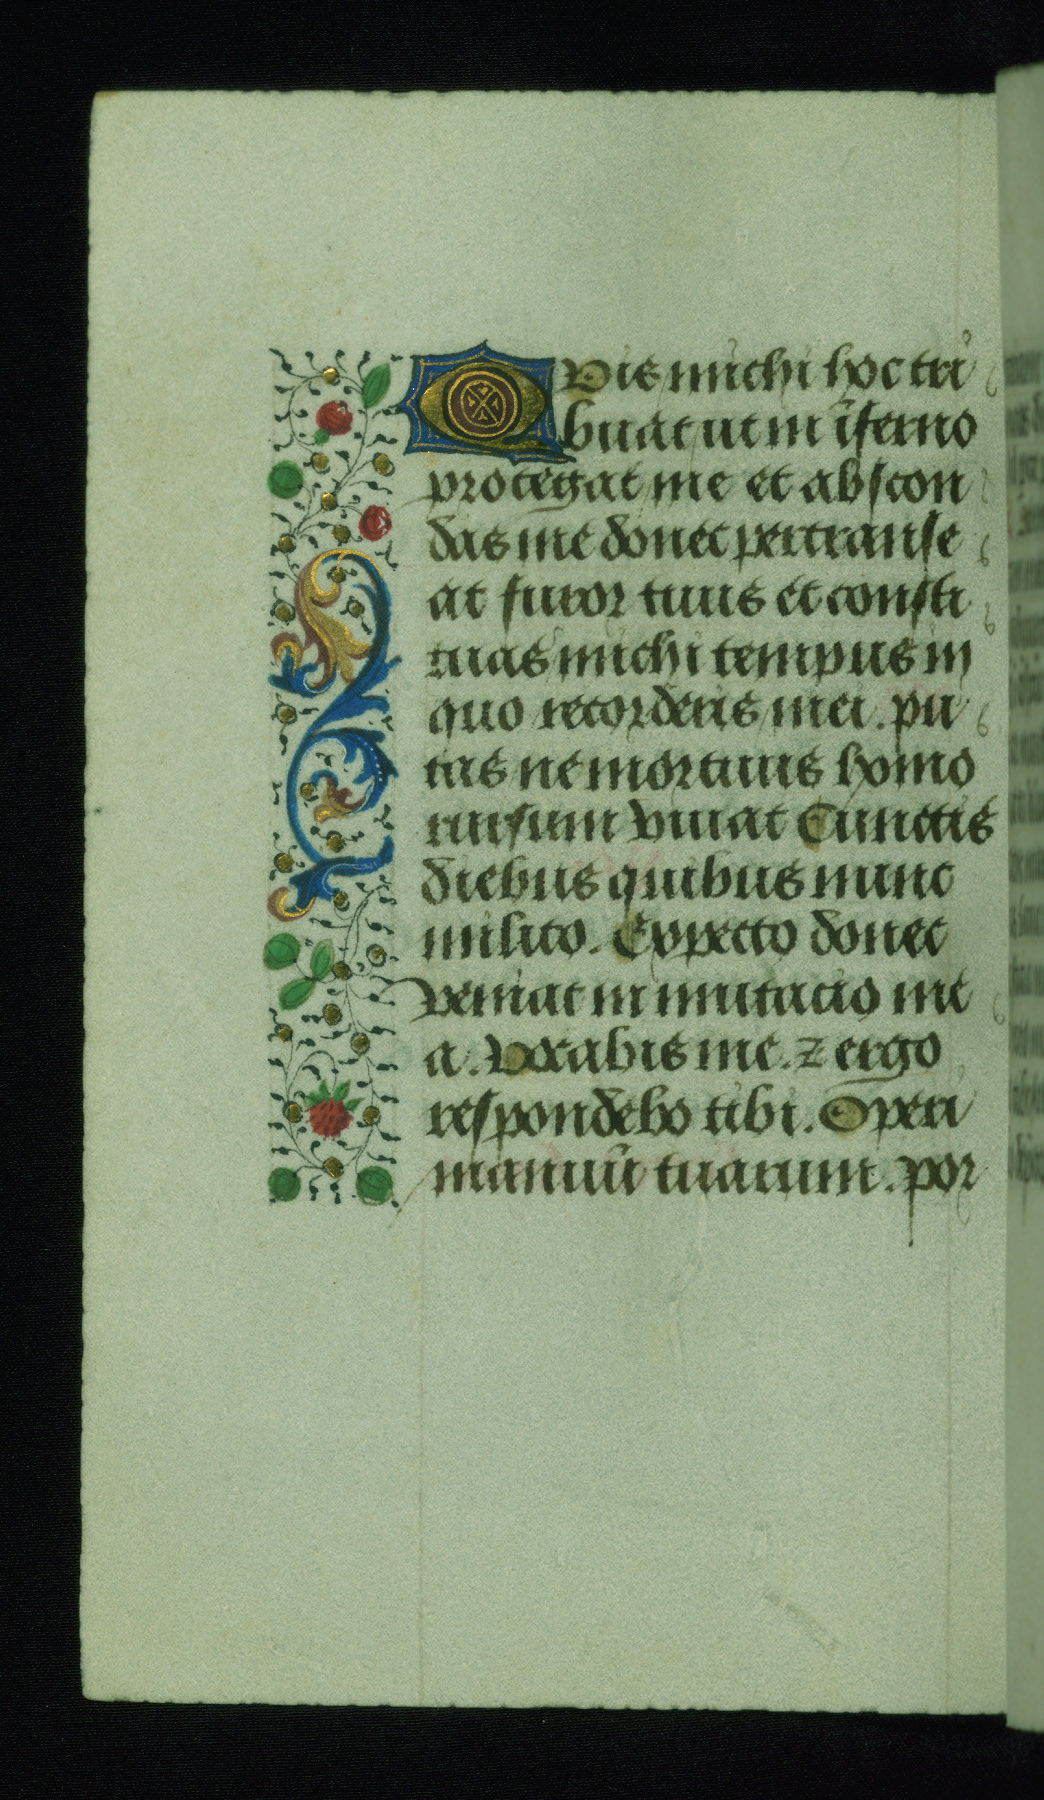 Quis michi hoc tri
buat ut in īferno
protegat me et abscon
das me donec pertranse
at furor tuus et consti
tuas michi tempus in
quo recorderis mei. pu
tas ne mortuus homo
rursum viuat Cunctis
diebus quibus nunc
milito. Expecto donec
veniat in mutacio me
a. Vocabis me. ⁊ ergo
respondebo tibi. Operi
manuū tuarum. por